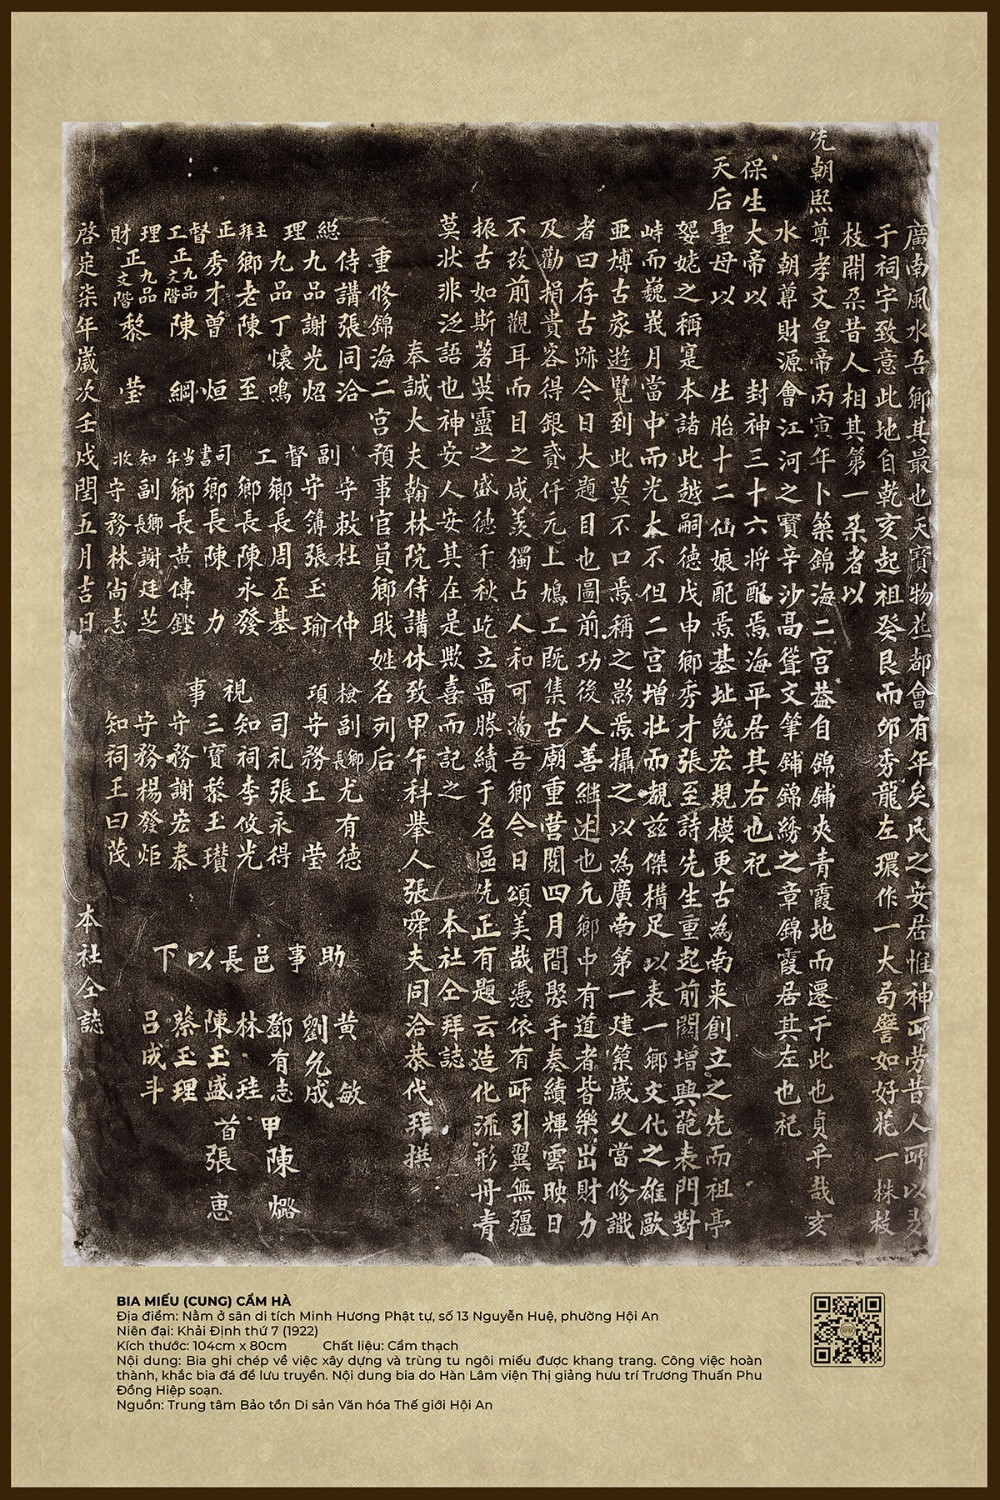 廣南風水吾鄉其最也天寶物花都會有年矣民之安居惟神所勞昔人所以
于祠宇致意此地自乾亥起祖癸艮而卯秀龍左環作一大局譬如好花一株枝
枝開朶昔人相其第一朶者以
先朝熙尊孝文皇帝丙寅年卜築錦海二宮益自錦鋪夾青霞地而遷于此也貞乎哉亥
水朝尊財源會江河之寶辛沙高聳文筆鋪錦綉之章錦霞居其左也祀
保生大帝以 封神三十六將配焉海平居其右也祀
天后聖母以 生胎十二仙娘配焉基址旣宏規模更古為南来創立之先而祖亭
婺姥之稱寔本諸此越嗣德戊申鄉秀才張至詩先生重起前關增興葩表門對
峙而巍峩月當中而光太不但二宮增壯而覩茲傑構足以表一鄉文化之雄歐
亜博古家遊覽到此莫不口焉稱之影焉攝之以為廣南第一建築歲久當修識
者曰存古跡今日大題目也圖前功後人善繼述也允鄉中有道者皆樂出財力
及勸捐貴客得銀貳仟元上鳩工旣集古廟重营閱四月間聚手奏績輝雲映日
不改前觀耳而目之咸羡獨占人和可為吾鄉今日頌美哉憑依有所引翼無疆
振古如斯著英靈之盛德千秋屹立畱勝績于名區先正有題云造化流形丹青
莫状非泛語也神安人安其在是歟喜而記之 本社仝拜誌
奉誠大夫翰林院侍講休致甲午科舉人張舜夫同洽恭代拜撰
重修錦海二宮預事官員鄉職姓名列后
總理
侍講張同洽
九品謝光炤
九品丁懷鳴
主拜鄉老陳至
正督工
秀才曾烜
正九品文階陳綱
理財正九品文階黎莹
副督工
守敕杜仲
守簿張玉瑜
鄉長周丕基
鄉長陳永發
司書鄉長陳力
當年鄉長黃傳鏗
知收
副鄉長謝廷芝
守務林尚志
檢項
副鄉長尤有德
守務王莹
視事
司礼張永得
知祠李攸光
三寶黎玉瓚
守務謝宏泰
守務楊發炬
知祠王曰茂
助事邑長以下
黄敏
劉允成
鄧有志
林珪
陳玉盛
蔡玉理
呂成斗
甲首
陳爔
張惠
啓定柒年歲次壬戌閏五月吉日 本社仝誌
BIA MIẾU (CUNG) CẨM HÀ
Địa điểm: Nằm ở sân di tích Minh Hương Phật tự, số 13 Nguyễn Huệ, phường Hội An
Niên đại: Khải Định thứ 7 (1922)
Kích thước: 104cm x 80cm Chất liệu: Cẩm thạch
Nội dung: Bia ghi chép về việc xây dựng và trùng tu ngôi miếu được khang trang. Công việc hoàn
thành, khắc bia đá để lưu truyền. Nội dung bia do Hàn Lâm viện Thị giảng hưu trí Trương Thuấn Phu
Đồng Hiệp soạn.
Nguồn: Trung tâm Bảo tồn Di sản Văn hóa Thế giới Hội An